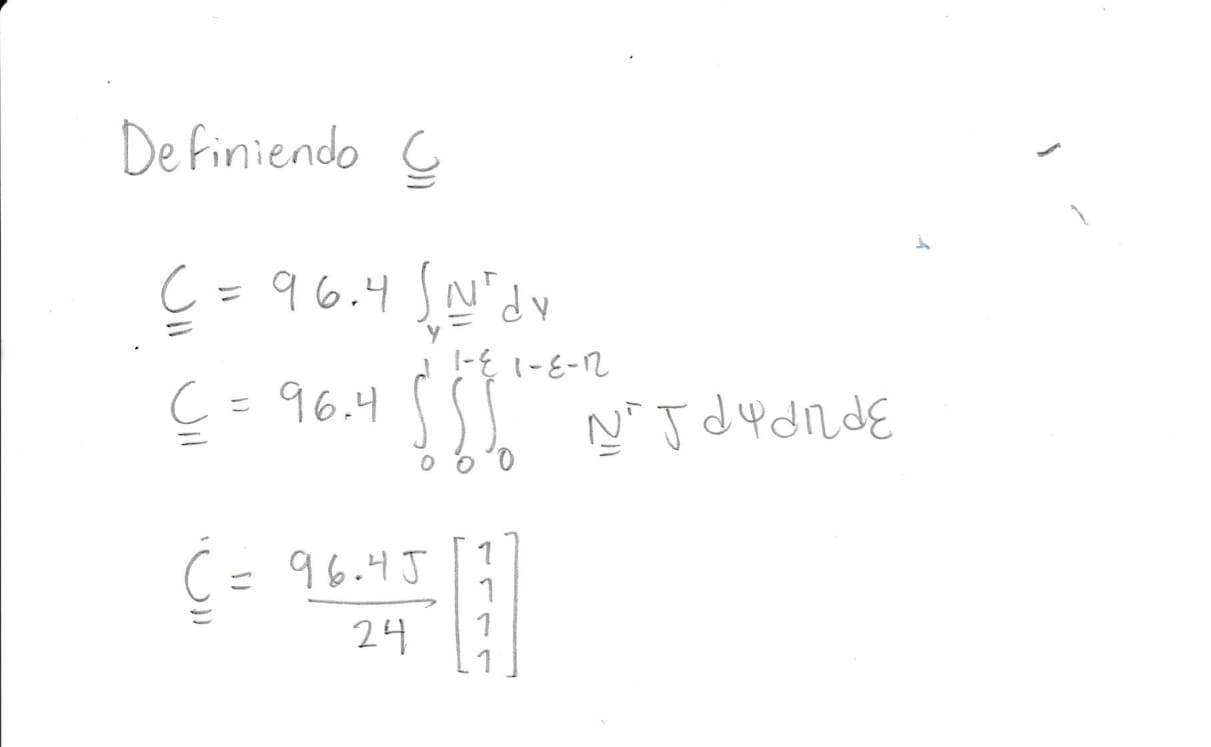 Definiendo C
C = 96.4 ∫v Nᵀ dv
C = 96.4 ∫₀¹ ∫₀^(1-ε) ∫₀^(1-ε-η) Nᵀ J dψ dη dε
C = 96.4J / 24 [1 1 1 1]